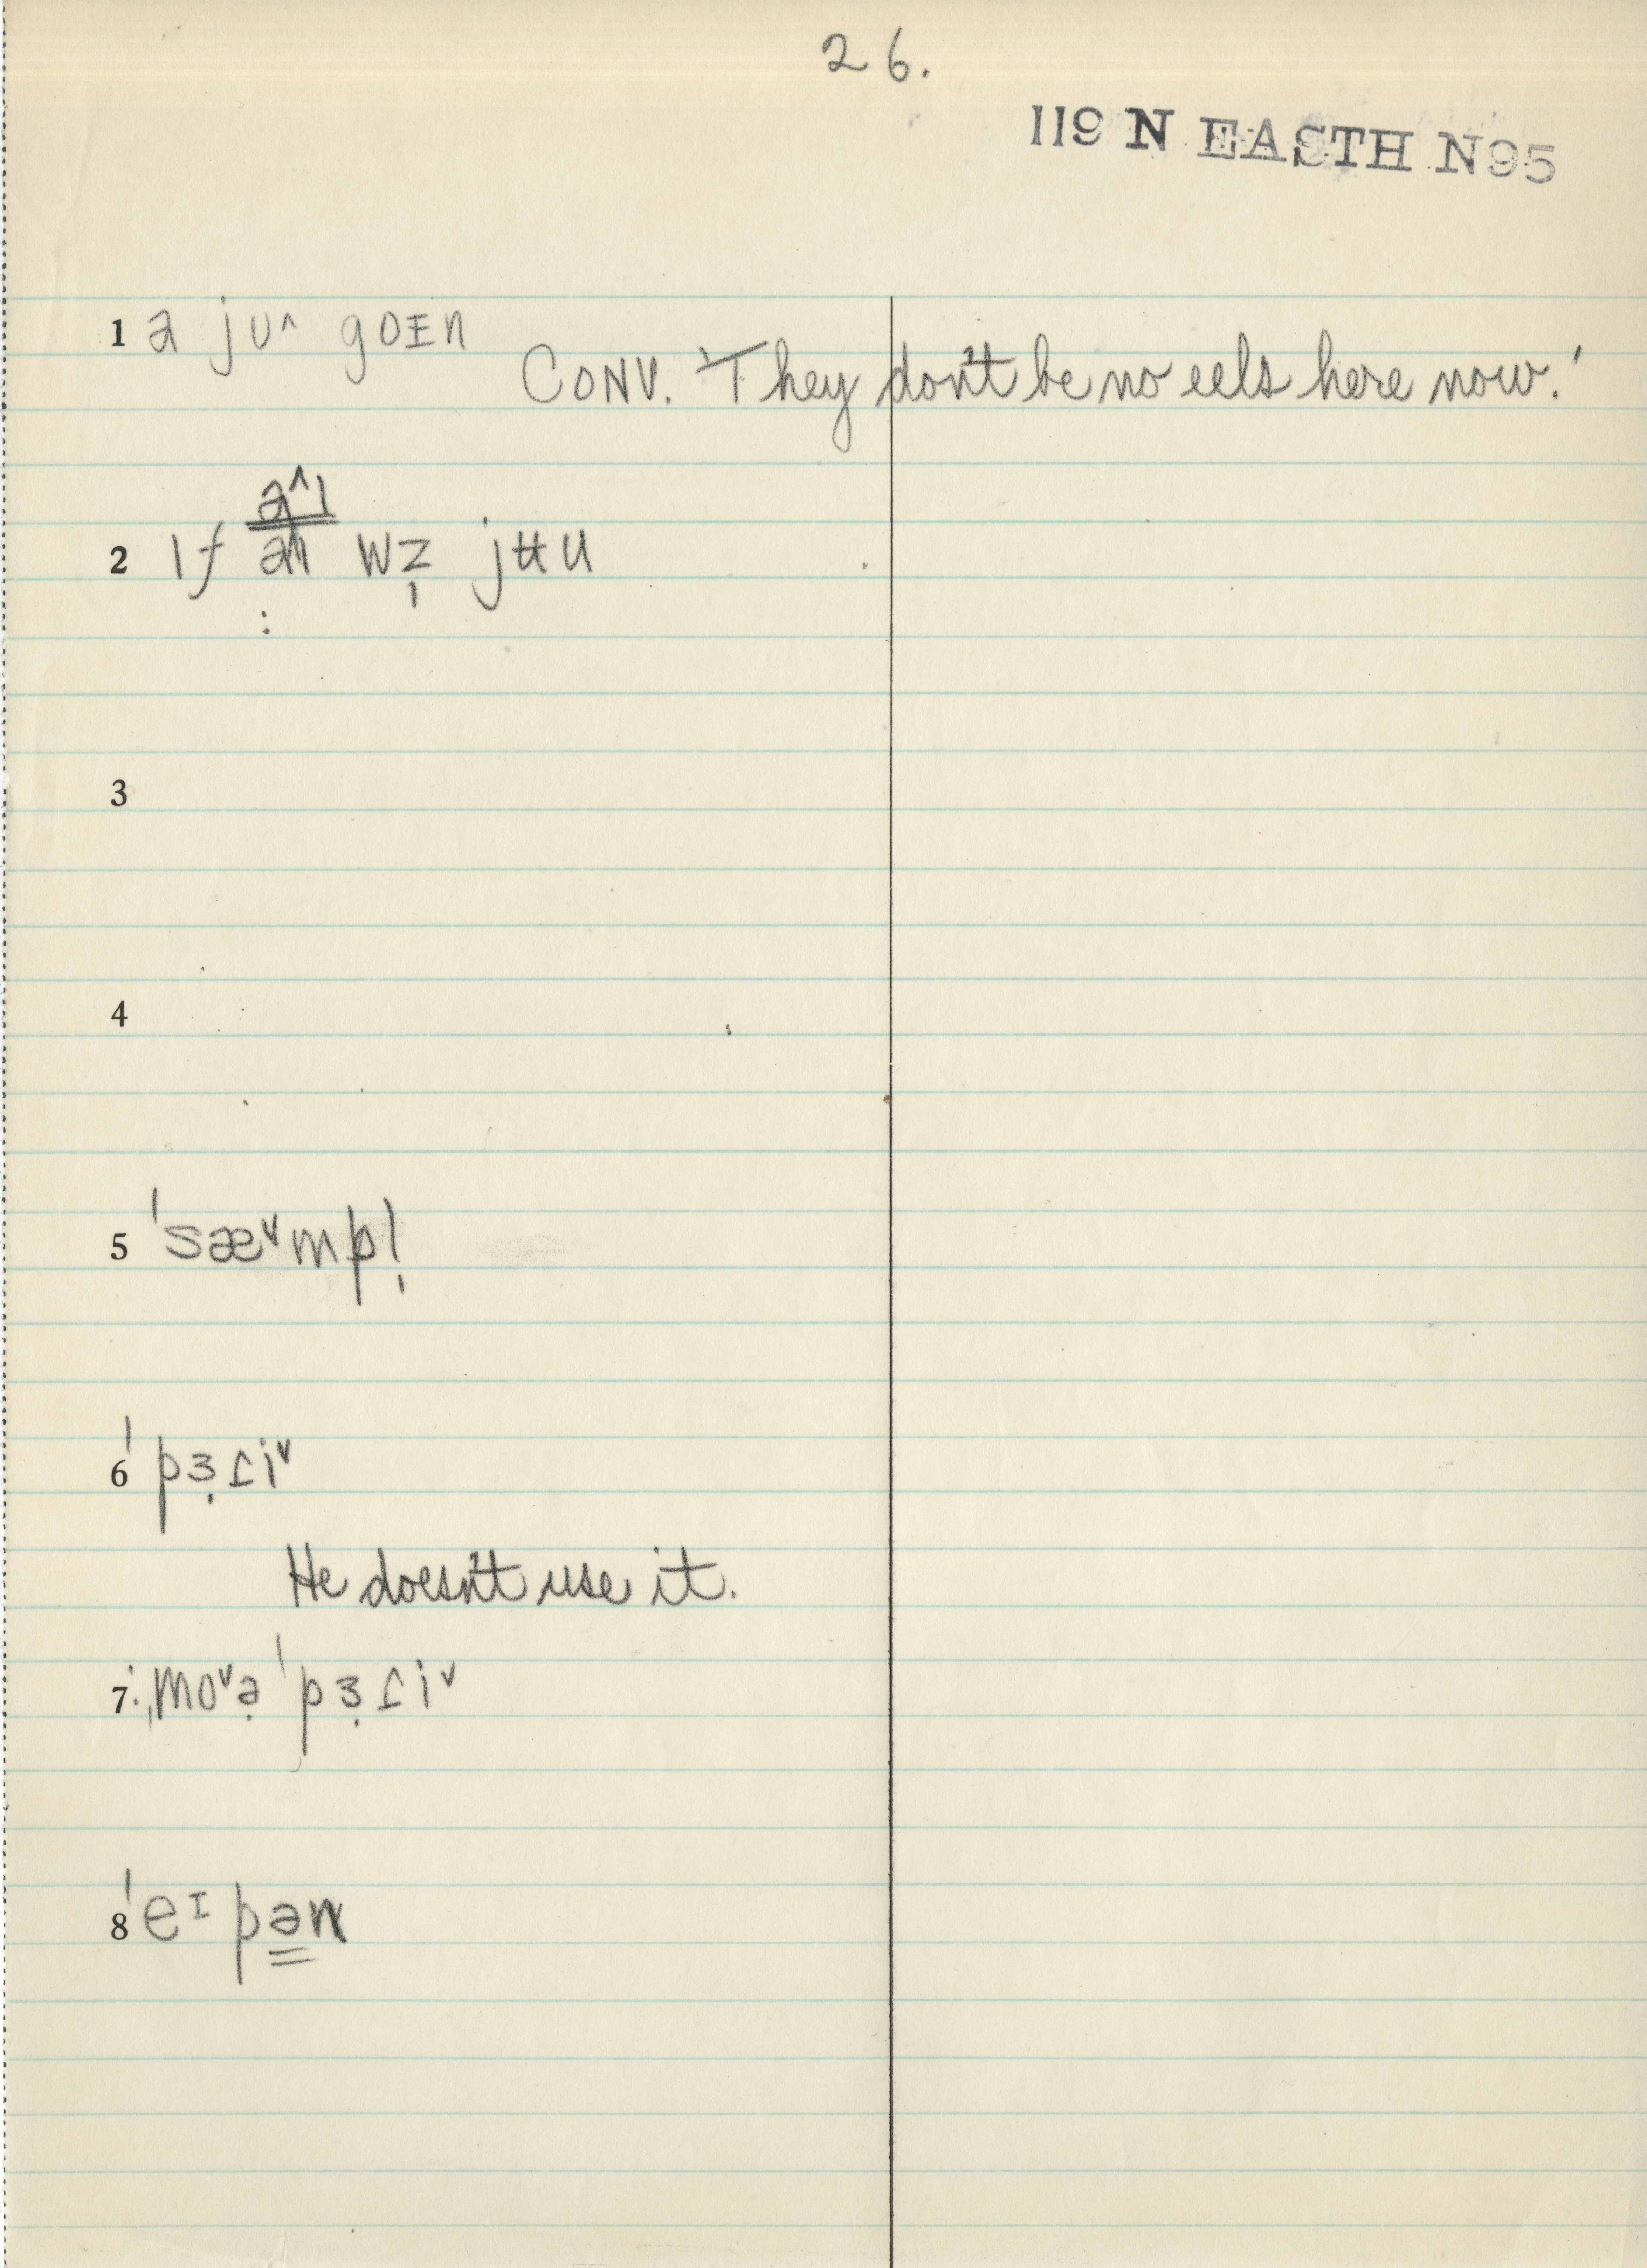 26.
119 N EASTH N95
1 ə jᴜ^ goɪn
CONV. 'They don't be no eels here now.'
a^ɪ
2 ɪf aɪ wz̩ jʉu
3
4
5 ˈsæˇmpl̩
6 ˈpɜ̣ɾiˇ
He doesn't use it.
7. ˌmoˇə̣ ˈpɜ̣ɾiˇ
8 ˈeɪpən